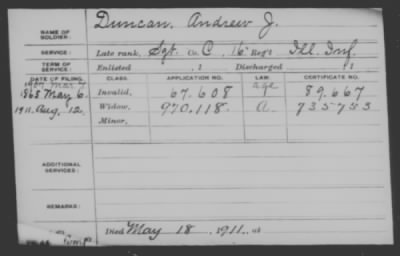 NAME OF SOLDIER: Duncan, Andrew J.
SERVICE: Late rank, Sgt. Co. C, 16 Reg't Ill. Inf.
TERM OF SERVICE: Enlisted , 1 Discharged , 1
DATE OF FILING. CLASS. APPLICATION NO. LAW. CERTIFICATE NO.
1907 Mar 7 age
1865 May 6. Invalid, 67.608 89.667
1911. Aug. 12. Widow, 970.118. A. 735753
Minor,
ADDITIONAL SERVICES:
REMARKS:
Died May 18, 1911. at